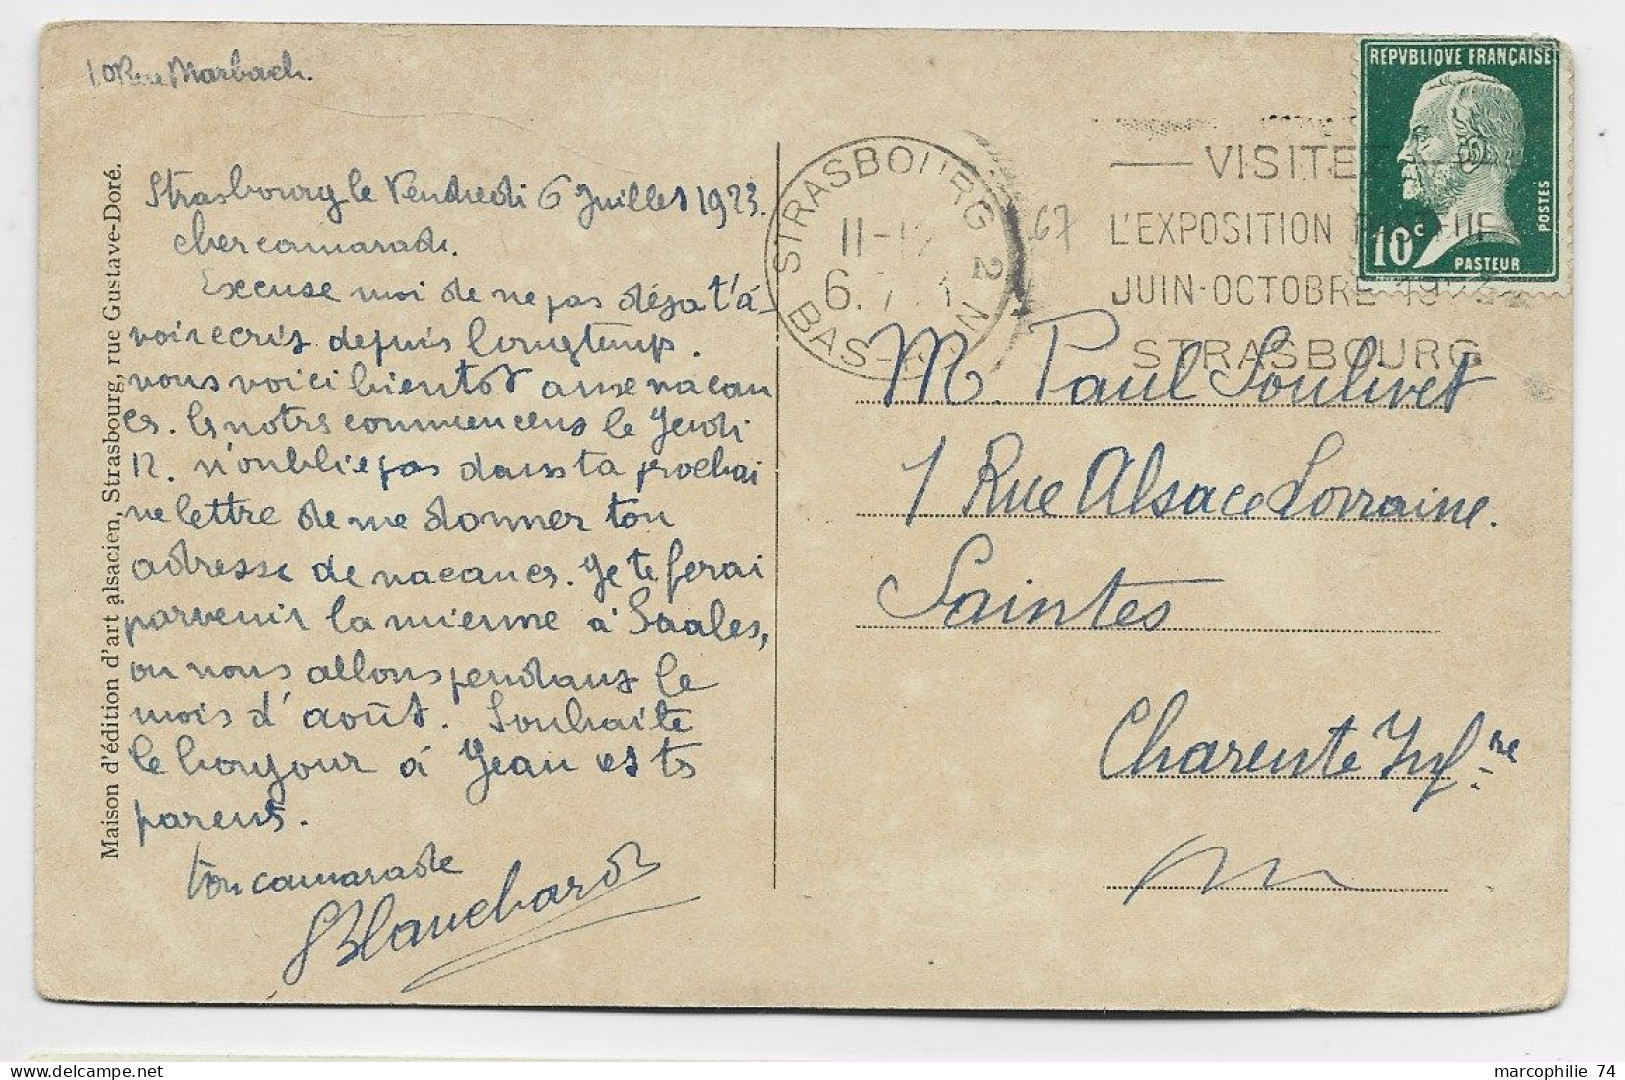 10 Rue Marbach.
Strasbourg le Vendredi 6 Juillet 1923.
cher camarade.
Excuse moi de ne pas déja t'a-
voir ecris depuis longtemps.
nous voici bientot aux vacan
ces. les notres commencens le Jeudi
12. n'oublie pas dans ta prochai
ne lettre de me donner ton
adresse de vacances. Je te ferai
parvenir la mienne à Saales,
ou nous allons pendant le
mois d'août. Souhaite
le bonjour à Jean et ts
parents.
ton camarade
Blanchard
Maison d'édition d'art alsacien, Strasbourg, rue Gustave-Doré.
STRASBOURG 2
11-12
6. 7
BAS-RHIN
67
VISITEZ
L'EXPOSITION PASTEUR
JUIN-OCTOBRE 1923
STRASBOURG
REPVBLIQVE FRANÇAISE
10c
PASTEUR
POSTES
M. Paul Soulivet
1 Rue Alsace Lorraine.
Saintes
Charente Infre
marcophilie 74